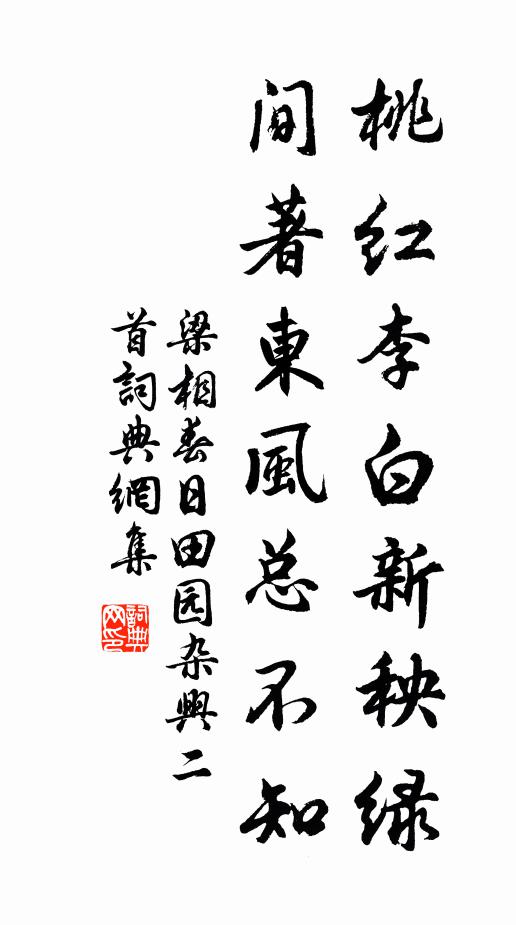 桃红李白新秧绿
间著東風总不知
梁相春日田园杂興二
首詞典網集
詞典
网印